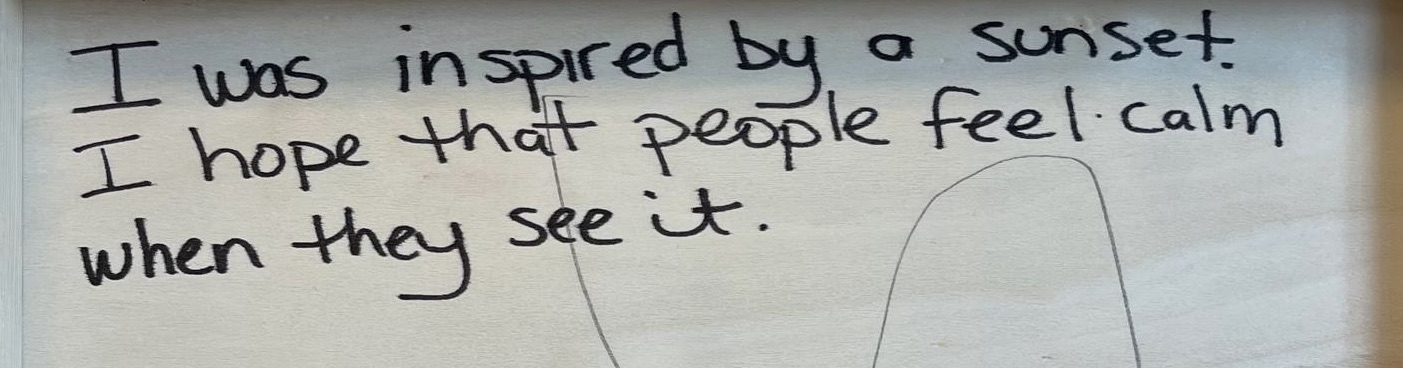 I was inspired by a sunset.
I hope that people feel calm
when they see it.